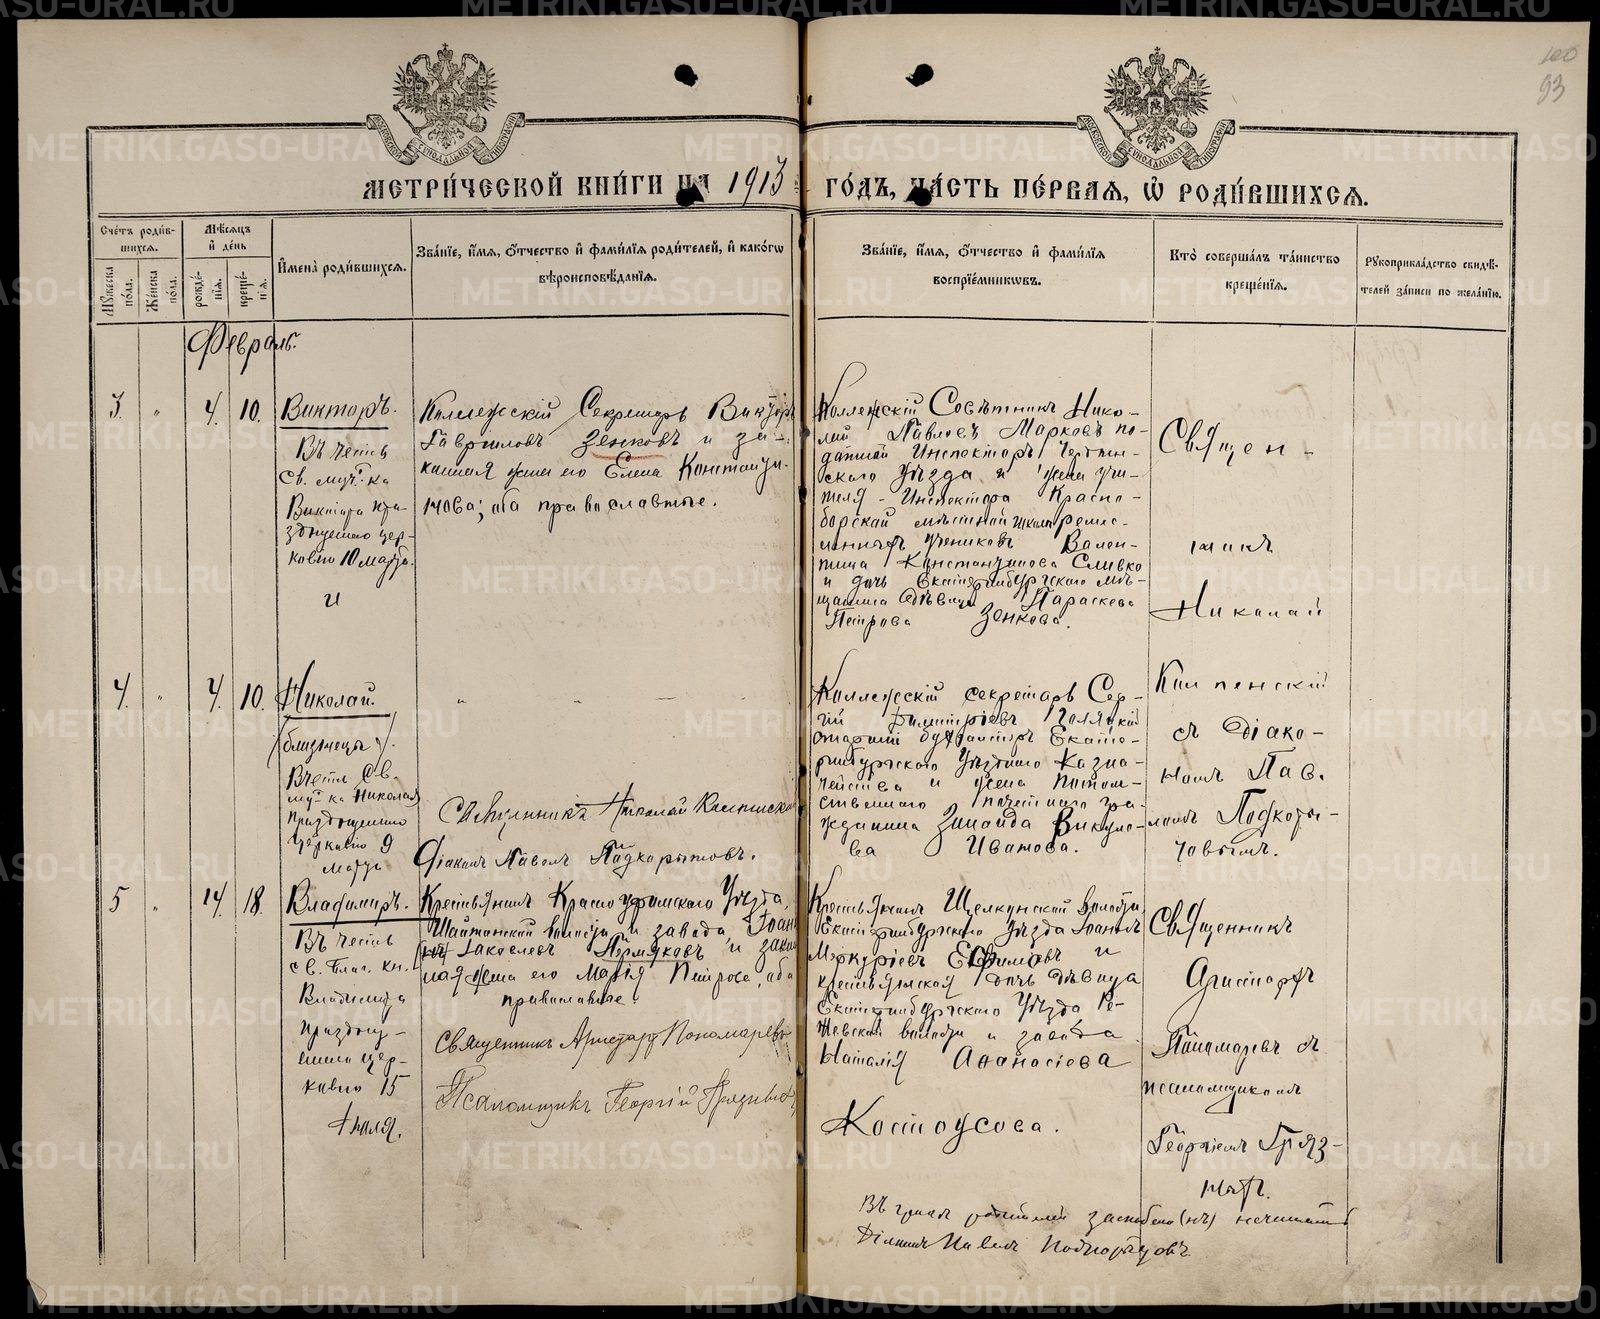 100
93
МЕТРИ́ЧЕСКОЙ КНИ́ГИ НА 1913 ГО́ДЪ, ЧА́СТЬ ПЕ́РВАЯ, Ѡ҆ РОДИ́ВШИХСЯ.
Сче́тъ роди́в-
шихся.
Мꙋ́жеска по́ла.
Же́нска по́ла.
Мѣ́сяцъ
и҆ де́нь
рожде́-
нїя.
креще́-
нїя.
И҆мена̀ роди́вшихся.
Зва́нїе, и҆́мя, ѻ҆́тчество и҆ фами́лїя роди́телей, и҆ како́гѡ
вѣроисповѣ́данїя.
Зва́нїе, и҆́мя, ѻ҆́тчество и҆ фами́лїя
воспрїе́мникѡвъ.
Кто̀ соверша́лъ та́инство
креще́нїя.
Рꙋкоприкла́дство свидѣ́-
телей за́писи по жела́нїю.
Февраль.
3 " 4. 10. Викторъ.
Въ честь
Св. муч-ка
Виктора пра-
зднуемаго цер-
ковію 10 марта.
и
Коллежскій Секретарь Викторъ
Гавріиловъ Зенковъ и за-
конная жена его Елена Константи-
нова; оба православные.
Коллежскій Совѣтникъ Нико-
лай Павловъ Марковъ по-
датной Инспекторъ Чердын-
скаго уѣзда и жена учи-
теля - Инспектора Красно-
борской мѣстной школы ремес-
ленныхъ учениковъ Вален-
тина Константинова Сливко
и дочь Екатеринбургскаго мѣ-
щанина дѣвица Параскева
Петрова Зенкова.
Священ-
никъ
Николай
4. " 4. 10. Николай.
(близнецы).
Въ честь Св.
муч-ка Николая
празднуемаго
Церковію 9
марта
" " —
Священникъ Николай
Діаконъ Павелъ Подкорытовъ.
Коллежскій секретарь Сер-
гій Димитріевъ
старшій бухгалтеръ Екате-
ринбургскаго Уѣзднаго Казна-
чейства и жена потом-
ственнаго почетнаго гра-
жданина Зинаида Викуло-
ва Иванова.
съ Діако-
номъ Пав-
ломъ Подкоры-
товымъ.
5 " 14. 18. Владимиръ.
Въ честь
св. благ. кн.
Владимира
праздну-
емаго цер-
ковію 15
Іюля.
Крестьянинъ Красноуфимскаго Уѣзда,
Шайтанской волости и завода, Іоаннъ
(нъ) Іаковлевъ Пермяковъ и закон-
ная жена его Марія Петрова, оба
православные.
Священникъ Аристархъ Пономаревъ
Псаломщикъ Георгій Грязныхъ
Крестьянинъ Щелкунской волости,
Екатеринбургскаго уѣзда Іоаннъ
Меркуріевъ Ефимовъ и
крестьянская дочь дѣвица
Екатеринбургскаго Уѣзда Ре-
жевской волости и завода
Наталія Аѳанасіева
Костоусова.
Священникъ
Аристархъ
Пономаревъ съ
псаломщикомъ
Георгіемъ Гряз-
ныхъ.
Въ графѣ родителей заскоблено (нъ) не читать
Діаконъ Павелъ Подкорытовъ.
METRIKI.GASO-URAL.RU